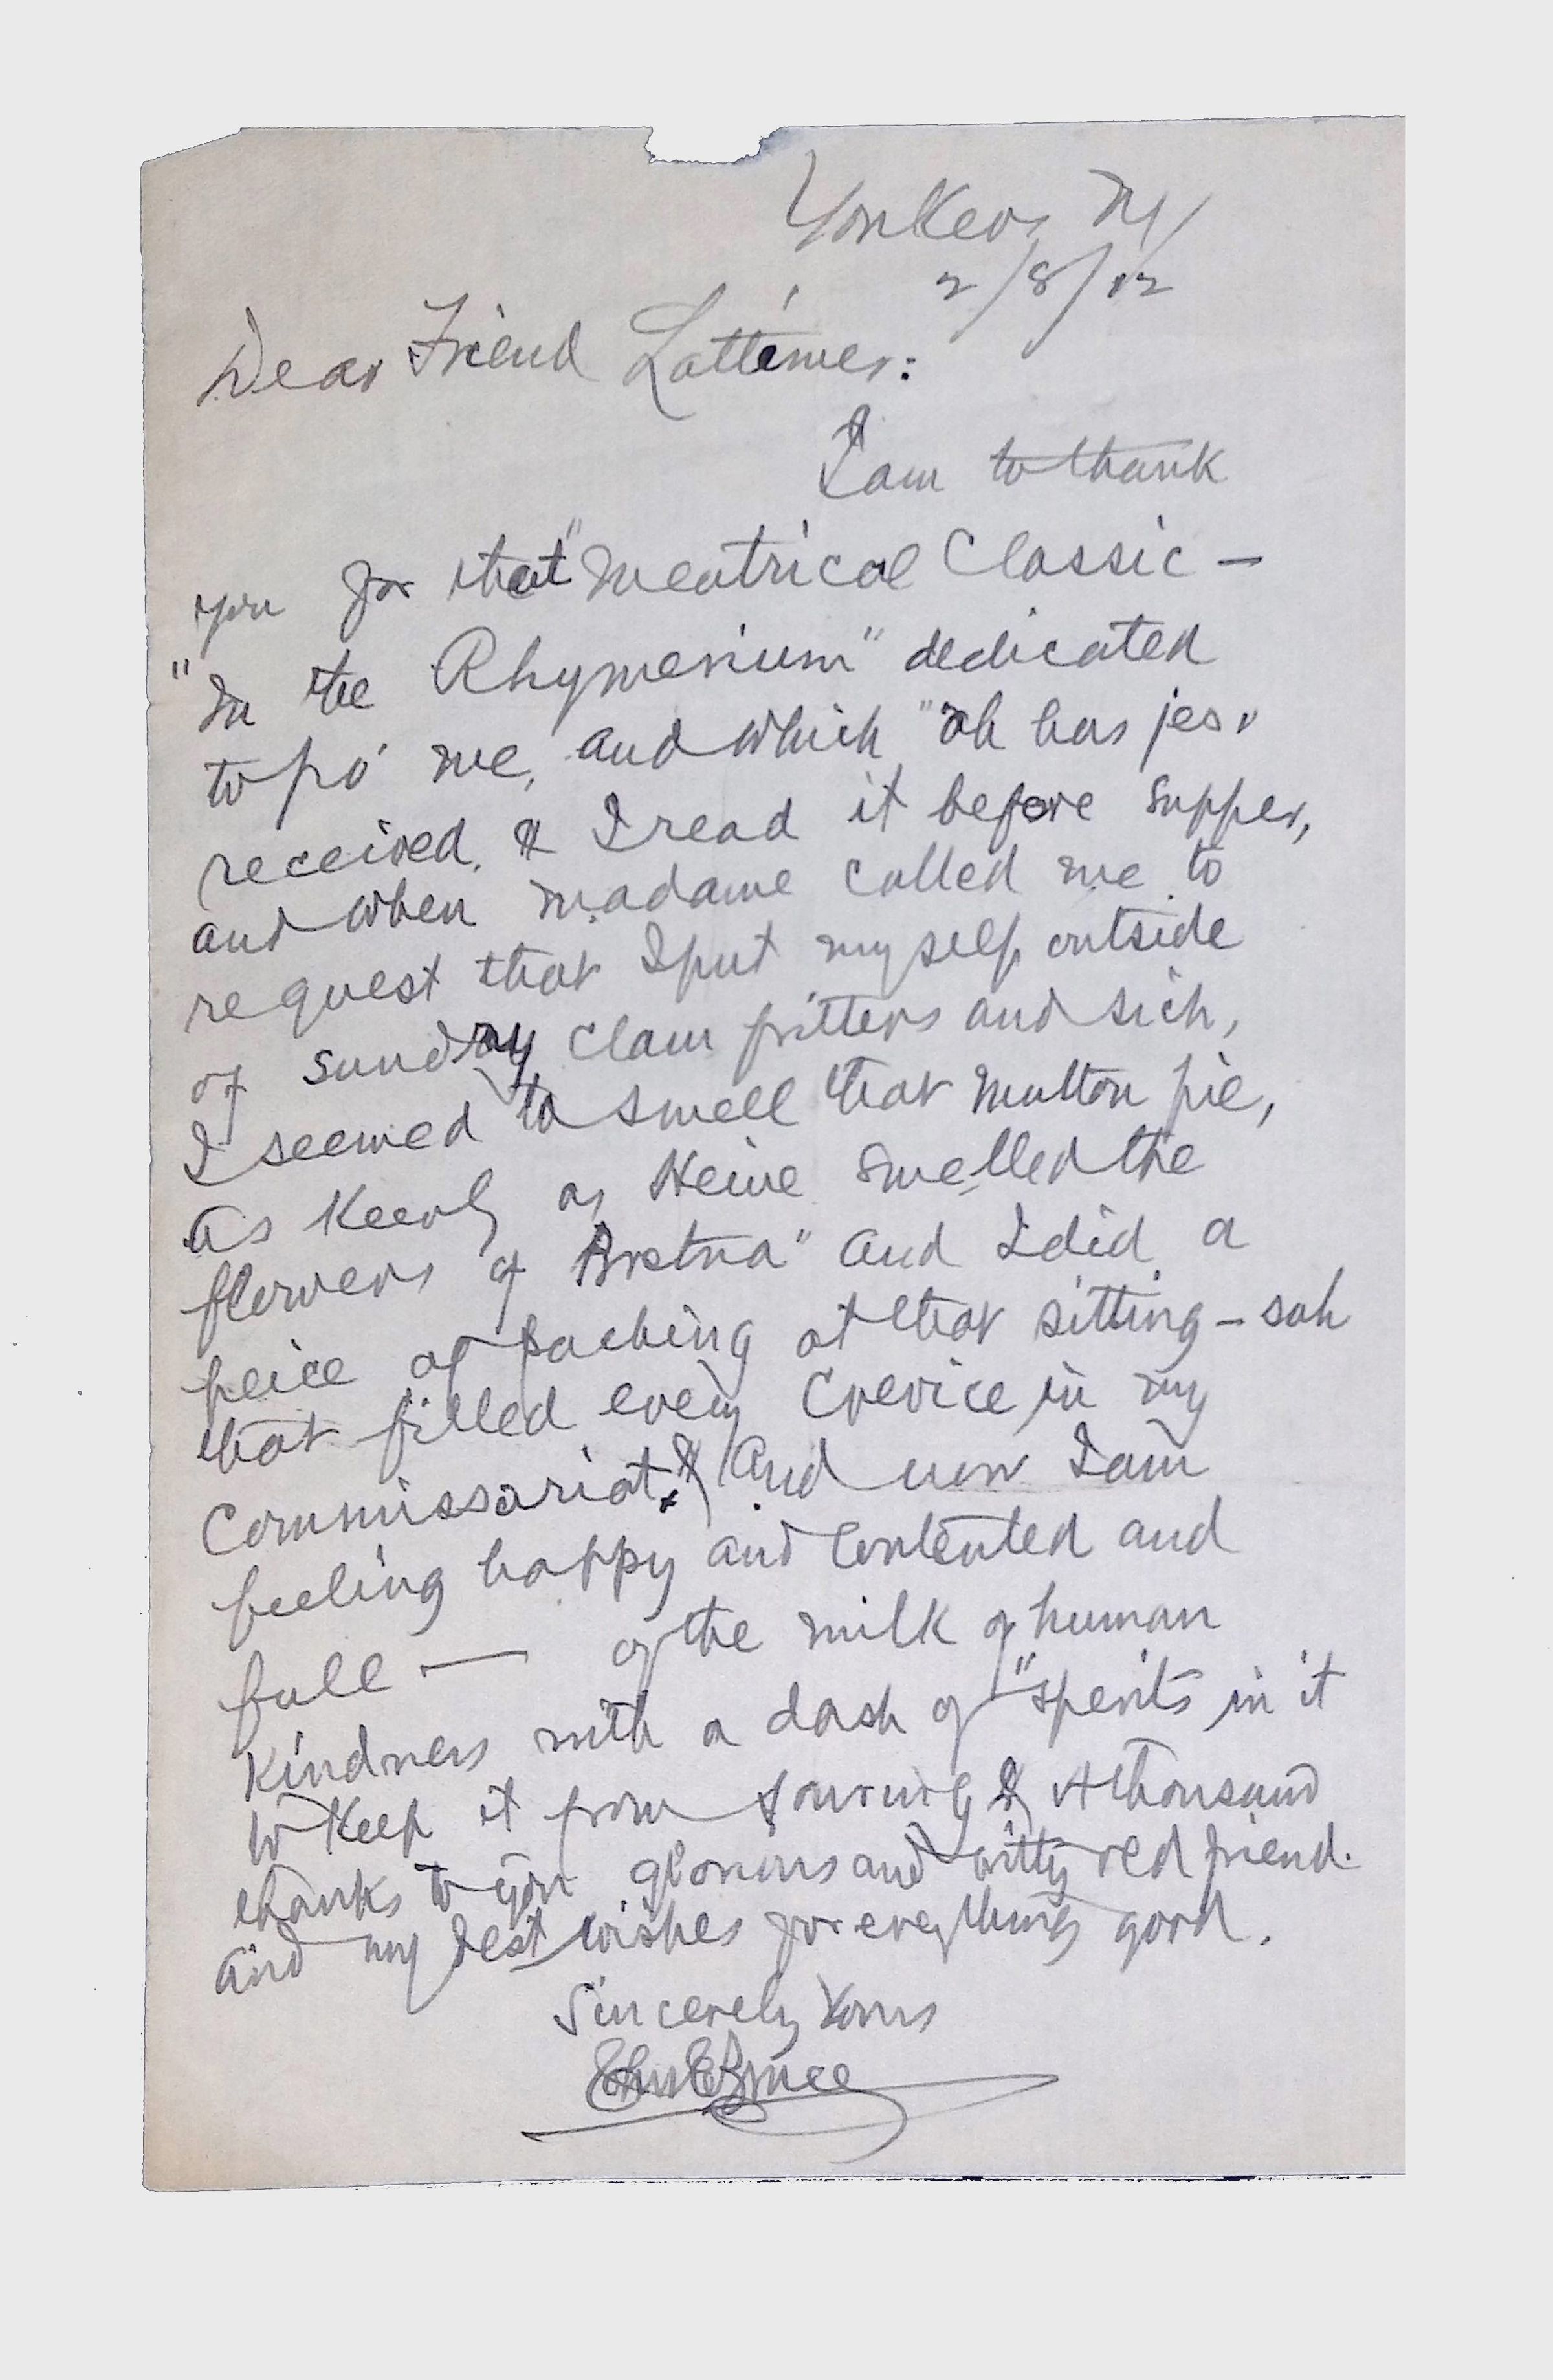 Yonkers NY
2/8/12
Dear Friend Lattimer:
I am to thank
you for that "meatrical Classic —
"In the Rhymenium" dedicated
to po' me, and which "ah has jes'
received. & I read it before supper,
and when madame called me to
request that I put myself outside
of sundry clam fritters and sich,
I seemed to smell that mutton pie,
as keenly as Heine smelled the
flowers of" and I did a
peice of packing at that sitting — sah
that filled every crevice in my
commissariat. & And now I am
feeling happy and contented and
full — of the milk of human
kindness with a dash of "sperits in it
to keep it from souring & A thousand
thanks to you glorious and witty red friend.
and my best wishes for everything good.
Sincerely Yours
Bruce